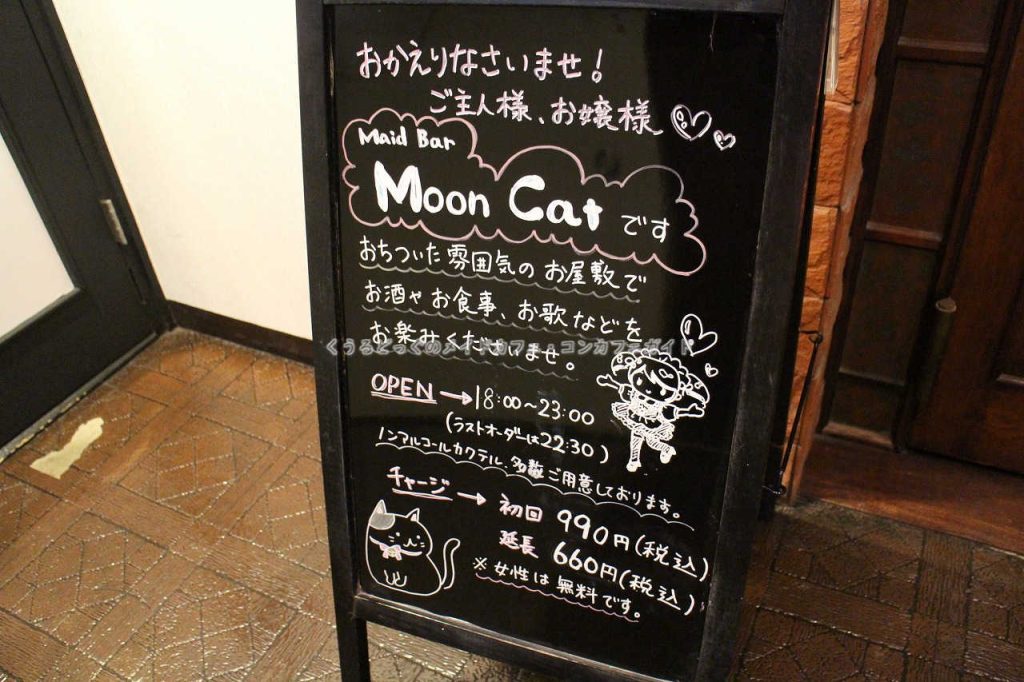 おかえりなさいませ！
ご主人様、お嬢様
Maid Bar
Moon Catです
おちついた雰囲気のお屋敷で
お酒やお食事、お歌などを
お楽しみくださいませ。
くうるどっぐのメイドカフェ・コンカフェガイド
OPEN→18:00～23:00
(ラストオーダーは22:30)
ノンアルコールカクテル、多数ご用意しております。
チャージ→初回 990円(税込)
延長 660円(税込)
※女性は無料です。